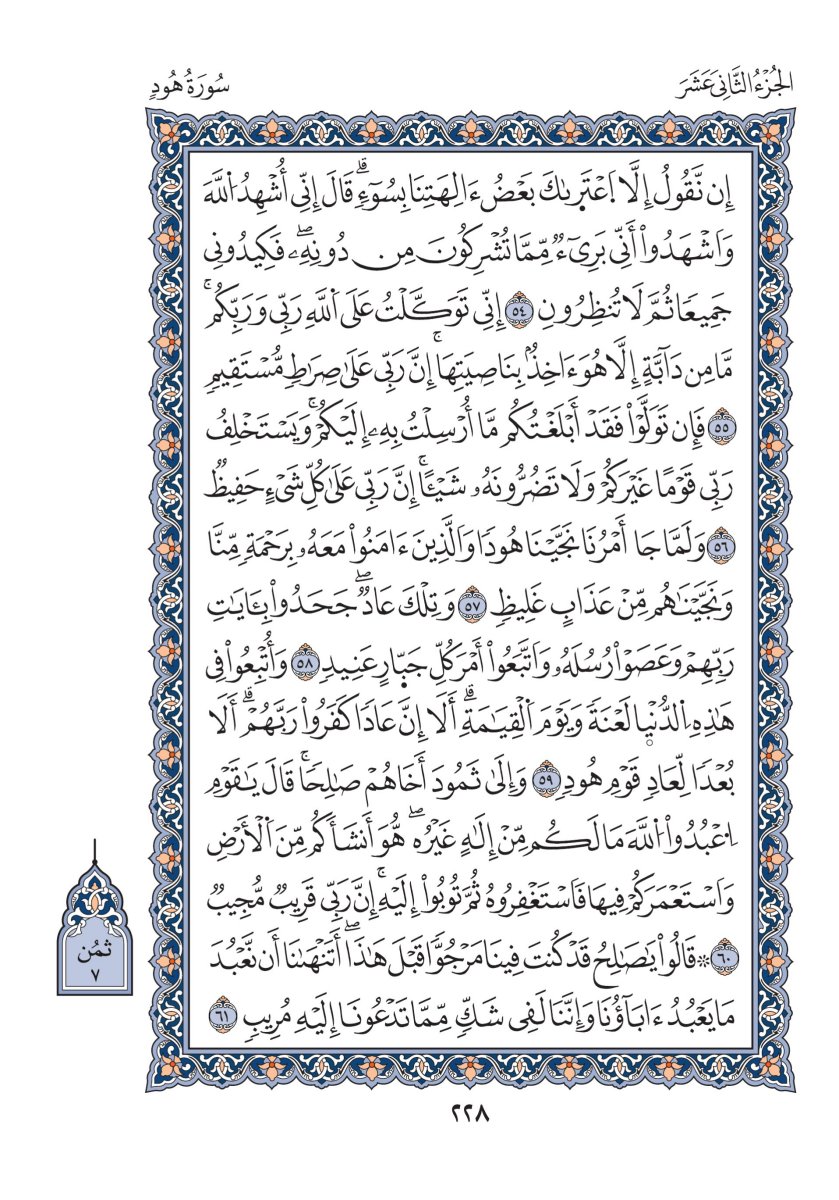 الجُزْءُ الثَّانِيَ عَشَرَ
سُورَةُ هُودٍ
إِن نَّقُولُ إِلَّا اَ۪عْتَر۪ىٰكَ بَعْضُ ءَالِهَتِنَا بِسُوٓءٖۗ قَالَ إِنِّي أُشْهِدُ اُ۬للَّهَ
وَاَشْهَدُواْ أَنِّي بَرِيٓءٞ مِّمَّا تُشْرِكُونَ مِن دُونِهِۦۖ فَكِيدُونِي
جَمِيعٗا ثُمَّ لَا تُنظِرُونِ ٥٤ إِنِّي تَوَكَّلْتُ عَلَى اَ۬للَّهِ رَبِّي وَرَبِّكُمۚ
مَّا مِن دَآبَّةٍ إِلَّا هُوَ ءَاخِذُۢ بِنَاصِيَتِهَاۚ إِنَّ رَبِّي عَلَىٰ صِرَٰطٖ مُّسْتَقِيمٖ
٥٥ فَإِن تَوَلَّوْاْ فَقَدْ أَبْلَغْتُكُم مَّا أُرْسِلْتُ بِهِۦ إِلَيْكُمْۚ وَيَسْتَخْلِفُ
رَبِّي قَوْمًا غَيْرَكُمْ وَلَا تَضُرُّونَهُۥ شَيْـًٔاۚ إِنَّ رَبِّي عَلَىٰ كُلِّ شَيْءٍ حَفِيظٞ
٥٦ وَلَمَّا جَا أَمْرُنَا نَجَّيْنَا هُودٗا وَالَّذِينَ ءَامَنُواْ مَعَهُۥ بِرَحْمَةٖ مِّنَّا
وَنَجَّيْنَٰهُم مِّنْ عَذَابٍ غَلِيظٖ ٥٧ وَتِلْكَ عَادٞۖ جَحَدُواْ بِـَٔايَٰتِ
رَبِّهِمْ وَعَصَوْاْ رُسُلَهُۥ وَاَتَّبَعُواْ أَمْرَ كُلِّ جَبّ۪ارٍ عَنِيدٖ ٥٨ وَأُتْبِعُواْ فِي
هَٰذِهِ اِ۬لدُّنْي۪ا لَعْنَةٗ وَيَوْمَ اَ۬لْقِيَٰمَةِۗ أَلَا إِنَّ عَادٗا كَفَرُواْ رَبَّهُمْۗ أَلَا
بُعْدٗا لِّعَادٖ قَوْمِ هُودٖ ٥٩ وَإِلَىٰ ثَمُودَ أَخَاهُمْ صَٰلِحٗاۚ قَالَ يَٰقَوْمِ
اِ۟عْبُدُواْ اُ۬للَّهَ مَا لَكُم مِّنْ إِلَٰهٍ غَيْرُهُۥۖ هُّوَ أَنشَأَكُم مِّنَ اَ۬لْأَرْضِ
وَاَسْتَعْمَرَكُمْ فِيهَا فَاَسْتَغْفِرُوهُ ثُمَّ تُوبُواْ إِلَيْهِۚ إِنَّ رَبِّي قَرِيبٞ مُّجِيبٞ
٦٠ ۞ قَالُواْ يَٰصَٰلِحُ قَدْ كُنتَ فِينَا مَرْجُوّٗا قَبْلَ هَٰذَاۖ أَتَنْهَىٰنَا أَن نَّعْبُدَ
مَا يَعْبُدُ ءَابَآؤُنَا وَإِنَّنَا لَفِي شَكّٖ مِّمَّا تَدْعُونَا إِلَيْهِ مُرِيبٖ ٦١
ثمُن
٧
٢٢٨